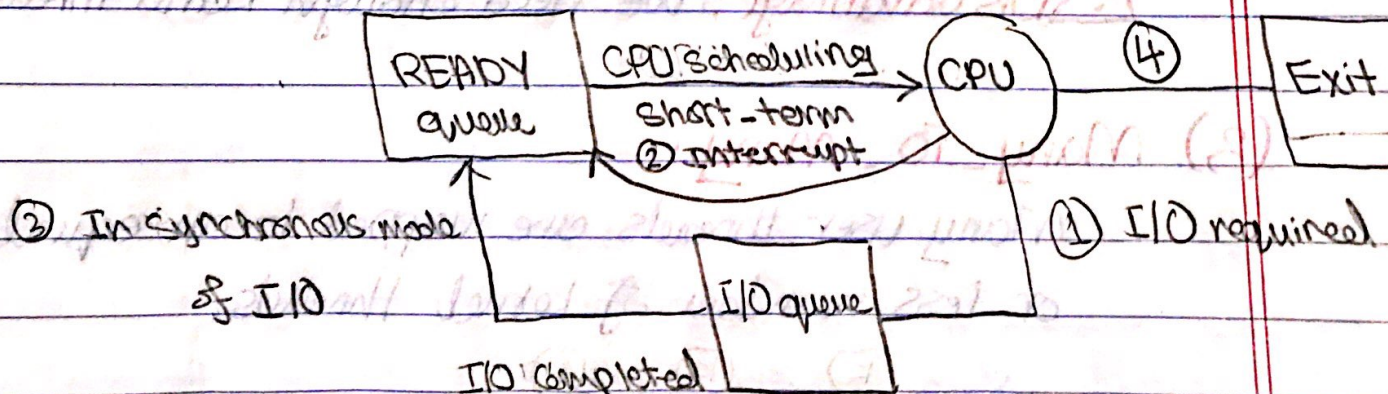 READY
queue
CPU scheduling
short-term
② Interrupt
CPU
④
Exit
③ In synchronous mode
of I/O
I/O queue
① I/O required
I/O completed